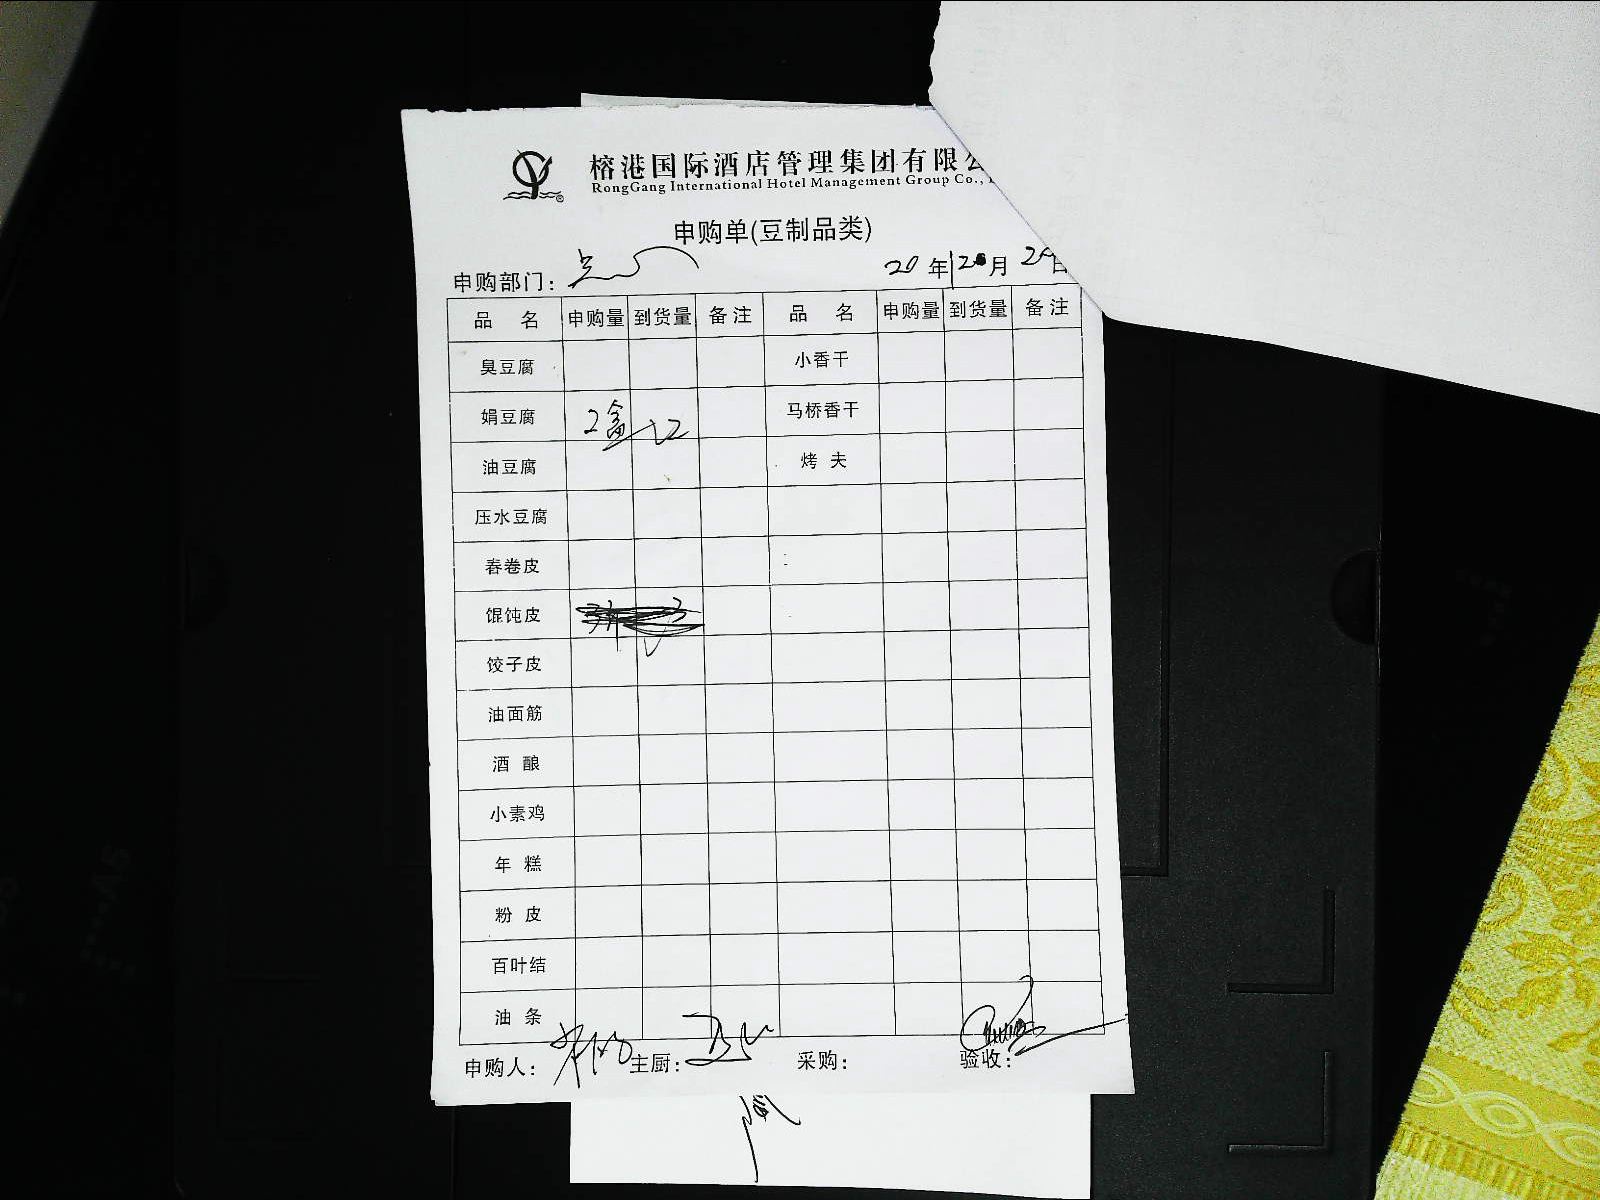 榕港国际酒店管理集团有限
RongGang International Hotel Management Group Co.,
申购单(豆制品类)
申购部门: 20 年 月 日
品 名 申购量 到货量 备注 品 名 申购量 到货量 备注
臭豆腐 小香干
娟豆腐 2盒 马桥香干
油豆腐 烤 夫
压水豆腐
春卷皮
馄饨皮
饺子皮
油面筋
酒 酿
小素鸡
年 糕
粉 皮
百叶结
油 条
申购人: 主厨: 采购: 验收: